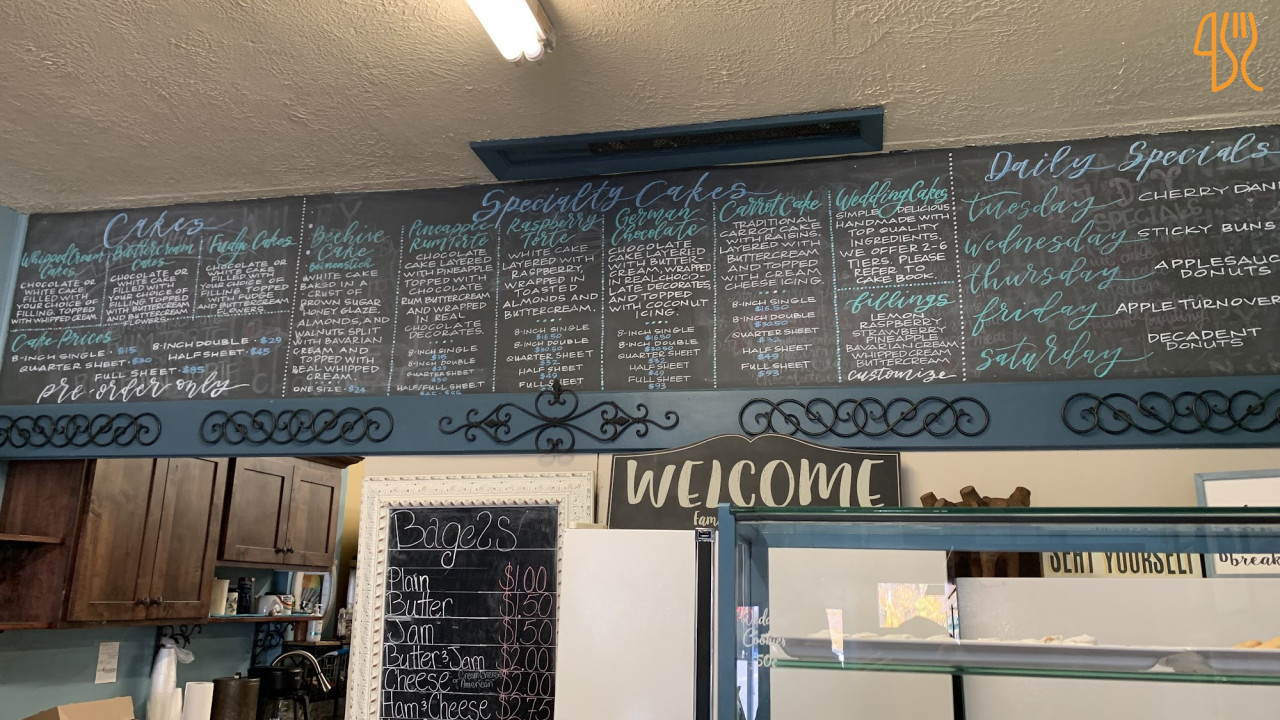 Cakes
Whipped Cream
Cakes
CHOCOLATE OR
WHITE CAKE
FILLED WITH
YOUR CHOICE OF
FILLING. TOPPED
WITH WHIPPED CREAM
Buttercream
Cakes
CHOCOLATE OR
WHITE CAKE
FILLED WITH
YOUR CHOICE OF
FILLING TOPPED
WITH BUTTERCREAM
FLOWERS.
Fudge Cakes
CHOCOLATE OR
WHITE CAKE
FILLED WITH
YOUR CHOICE OF
FILLING TOPPED
WITH FUDGE
AND BUTTERCREAM
FLOWERS
Cake Prices
8-INCH SINGLE · $15
8-INCH DOUBLE · $29
QUARTER SHEET · $30
HALF SHEET · $45
FULL SHEET · $85
pre-order only
Specialty Cakes
Beehive
Cake
WHITE CAKE
BAKED IN A
CRUST OF
BROWN SUGAR
HONEY GLAZE,
ALMONDS, AND
WALNUTS SPLIT
WITH BAVARIAN
CREAM AND
TOPPED WITH
REAL WHIPPED
CREAM.
ONE SIZE · $24
Pineapple
Rum Torte
CHOCOLATE
CAKE LAYERED
WITH PINEAPPLE
TOPPED WITH
CHOCOLATE
RUM BUTTERCREAM
AND WRAPPED
IN REAL
CHOCOLATE
DECORATES.
8-INCH SINGLE
8-INCH DOUBLE
QUARTER SHEET
HALF/FULL SHEET
Raspberry
Torte
WHITE CAKE
LAYERED WITH
RASPBERRY,
WRAPPED IN
TOASTED
ALMONDS AND
BUTTERCREAM.
8-INCH SINGLE
8-INCH DOUBLE
QUARTER SHEET
$32
HALF SHEET
$49
FULL SHEET
German
Chocolate
CHOCOLATE
CAKE LAYERED
WITH BUTTER
CREAM, WRAPPED
IN REAL CHOCOL
ATE DECORATES,
AND TOPPED
WITH COCONUT
ICING.
8-INCH SINGLE
8-INCH DOUBLE
QUARTER SHEET
$32
HALF SHEET
$49
FULL SHEET
$93
Carrot Cake
TRADITIONAL
CARROT CAKE
WITH RAISINS
LAYERED WITH
BUTTERCREAM
AND TOPPED
WITH CREAM
CHEESE ICING.
8-INCH SINGLE
$16.50
8-INCH DOUBLE
$30.50
QUARTER SHEET
$32
HALF SHEET
$49
FULL SHEET
$93
Wedding Cakes
SIMPLE & DELICIOUS
HANDMADE WITH
TOP QUALITY
INGREDIENTS.
WE OFFER 2-6
TIERS. PLEASE
REFER TO
CAKE BOOK.
fillings
LEMON
RASPBERRY
STRAWBERRY
PINEAPPLE
BAVARIAN CREAM
WHIPPED CREAM
BUTTERCREAM
customize
Daily Specials
tuesday CHERRY DANI
wednesday STICKY BUNS
thursday APPLESAUC
DONUTS
friday APPLE TURNOVER
saturday DECADENT
DONUTS
WELCOME
Fam
Bagels
Plain $1.00
Butter $1.50
Jam $1.50
Butter & Jam $2.00
Cheese Cream Cheese American $2.00
Ham & Cheese $2.75
SEAT YOURSELF
break
Cookies
50¢